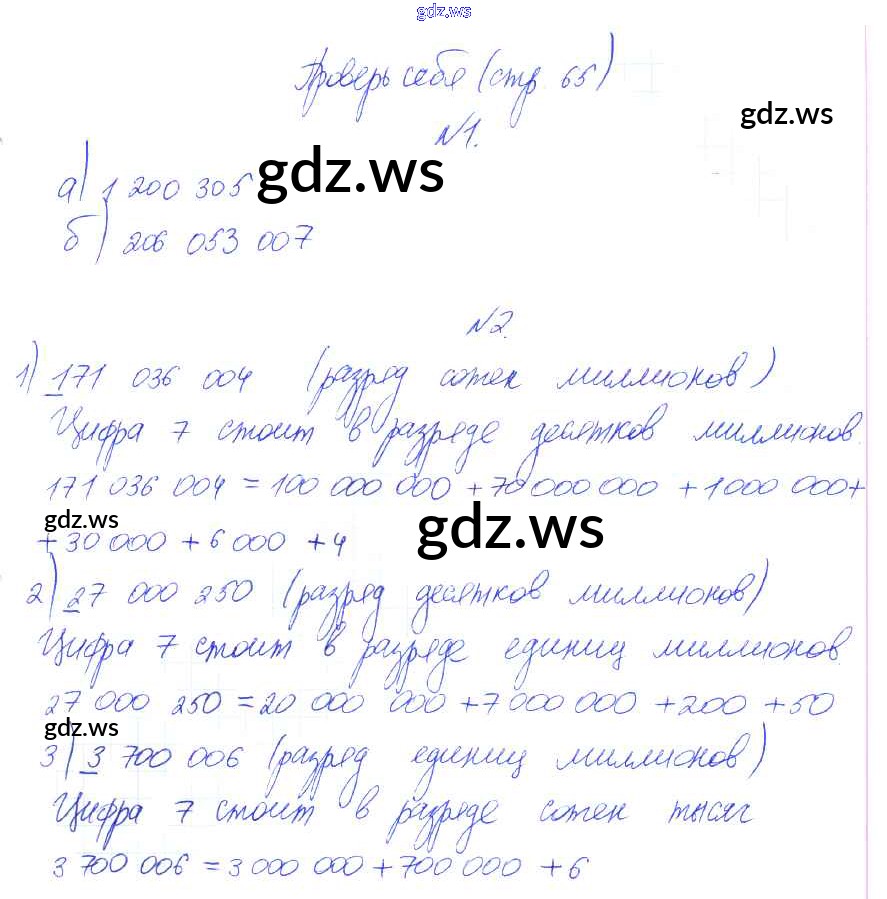 gdz.ws
Проверь себя (стр. 65)
gdz.ws
№1.
а) 1 200 305
gdz.ws
б) 206 053 007
№2.
1) 171 036 004 (разряд сотен миллионов)
Цифра 7 стоит в разряде десятков миллионов.
171 036 004 = 100 000 000 + 70 000 000 + 1 000 000 +
gdz.ws
gdz.ws
+ 30 000 + 6 000 + 4
2) 27 000 250 (разряд десятков миллионов)
Цифра 7 стоит в разряде единиц миллионов
27 000 250 = 20 000 000 + 7 000 000 + 200 + 50
gdz.ws
3) 3 700 006 (разряд единиц миллионов)
Цифра 7 стоит в разряде сотен тысяч
3 700 006 = 3 000 000 + 700 000 + 6